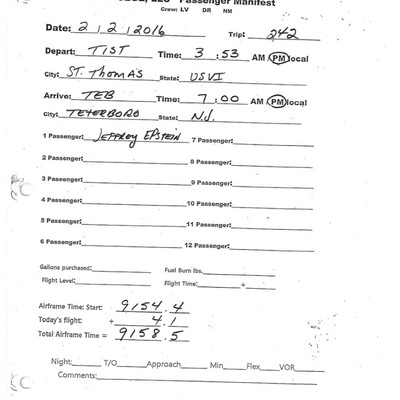 LLC Passenger Manifest
Crew: LV DR NM
Date: 2 | 2 | 2016 Trip: 242
Depart: TIST Time: 3 : 53 AM PM local
City: ST. THOMAS State: USVI
Arrive: TEB Time: 7 : 00 AM PM local
City: TETERBORO State: N.J.
1 Passenger: JEFFREY EPSTEIN 7 Passenger:
2 Passenger: 8 Passenger:
3 Passenger: 9 Passenger:
4 Passenger: 10 Passenger:
5 Passenger: 11 Passenger:
6 Passenger: 12 Passenger:
Gallons purchased: Fuel Burn lbs.
Flight Level: Flight Time: +
Airframe Time: Start: 9154.4
Today's flight: + 4.1
Total Airframe Time = 9158.5
Night: T/O Approach Min Flex VOR
Comments: